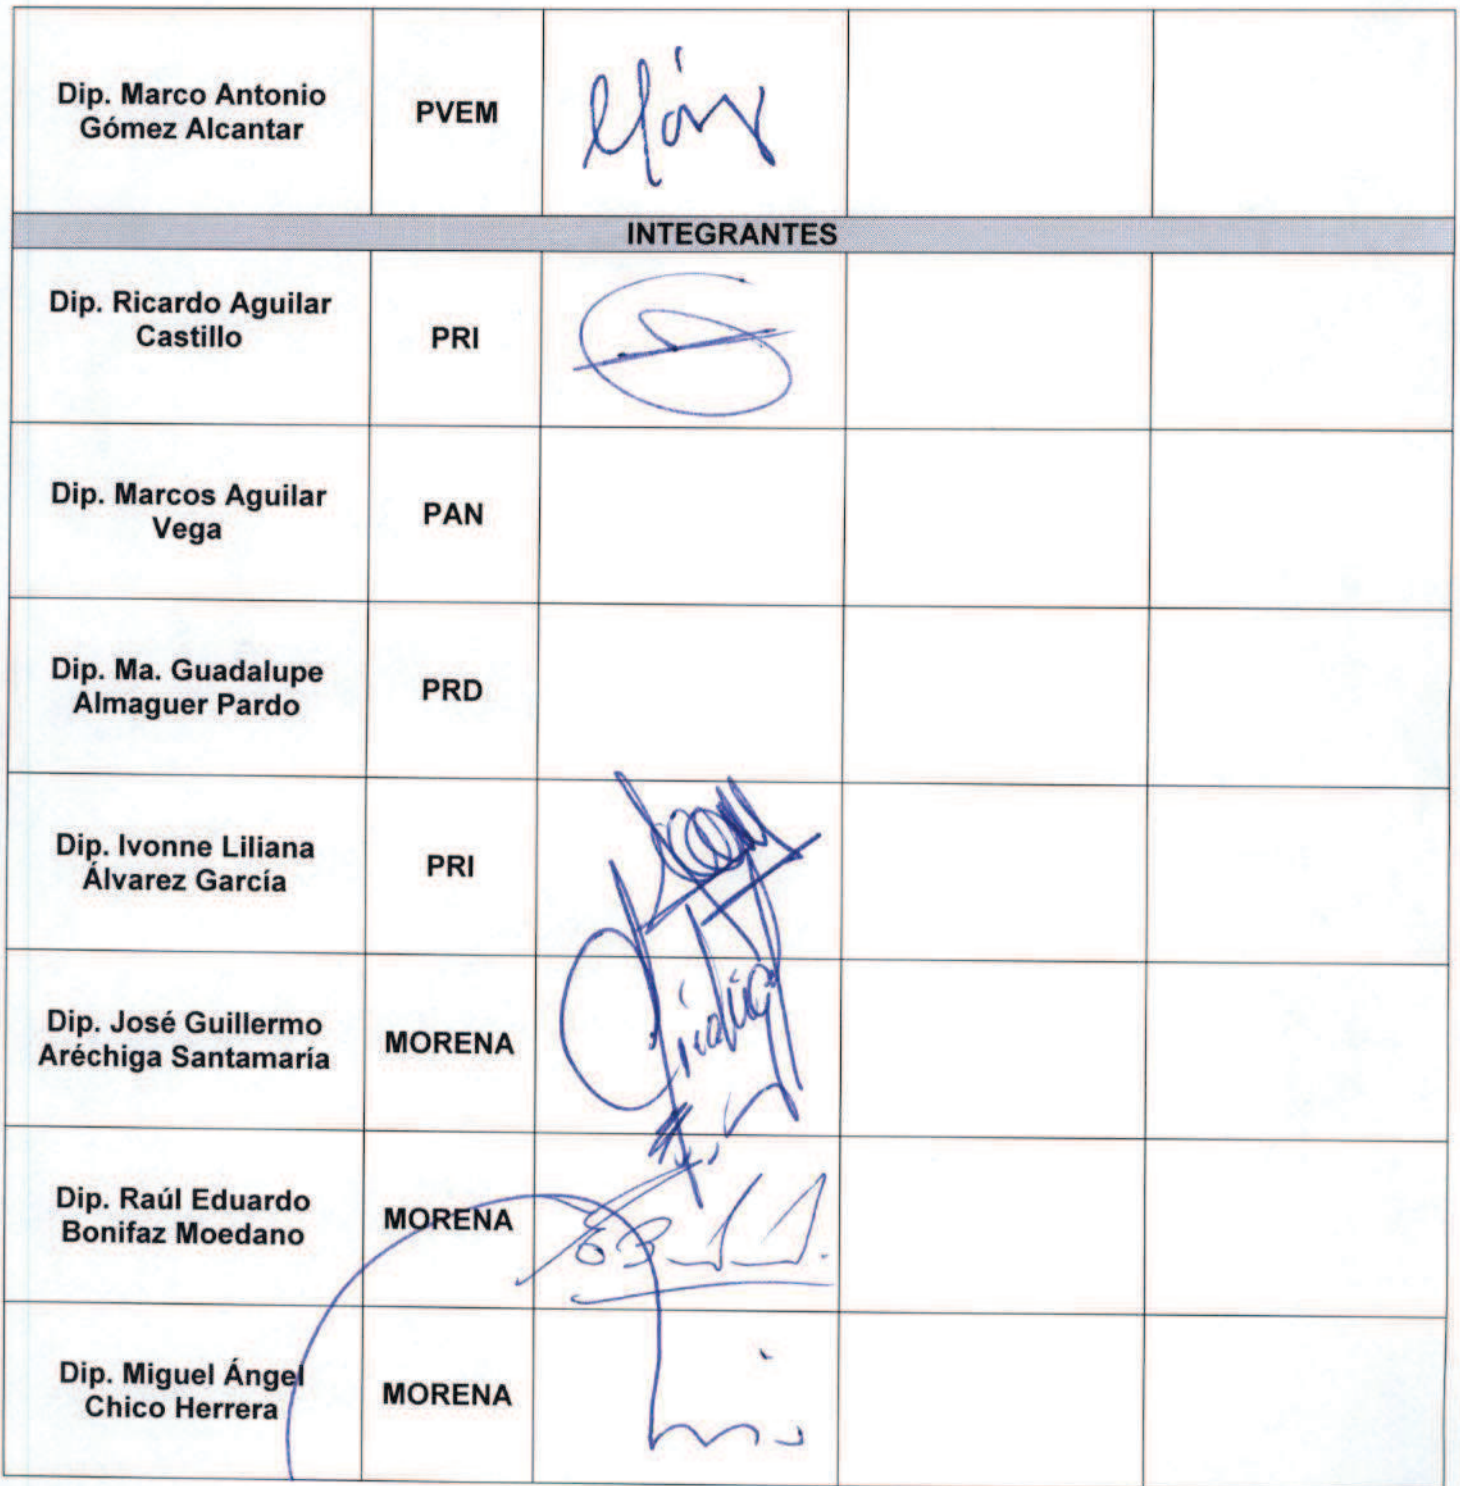 Dip. Marco Antonio
Gómez Alcantar
PVEM
INTEGRANTES
Dip. Ricardo Aguilar
Castillo
PRI
Dip. Marcos Aguilar
Vega
PAN
Dip. Ma. Guadalupe
Almaguer Pardo
PRD
Dip. Ivonne Liliana
Álvarez García
PRI
Dip. José Guillermo
Aréchiga Santamaría
MORENA
Dip. Raúl Eduardo
Bonifaz Moedano
MORENA
Dip. Miguel Ángel
Chico Herrera
MORENA